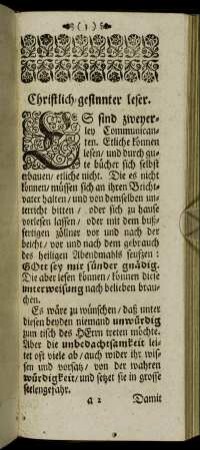 ( 1 )
Christlich-gesinnter leser.
ES sind zweyer-
ley Communican-
ten. Etliche können
lesen/ und durch gu-
te bücher sich selbst
erbauen/ etliche nicht. Die es nicht
können/ müssen sich an ihren Beicht-
vater halten/ und von demselben un-
terricht bitten/ oder sich zu hause
vorlesen lassen/ oder mit dem buß-
fertigen zöllner vor und nach der
beicht/ vor und nach dem gebrauch
des heiligen Abendmahls seufzen:
GOtt sey mir sünder gnädig.
Die aber lesen können/ können diese
unterweisung nach belieben brau-
chen.
Es wäre zu wünschen/ daß unter
diesen beyden niemand unwürdig
zum tisch des HErrn treten möchte.
Aber die unbedachtsamkeit lei-
tet oft viele ab/ auch wider ihr wis-
sen und vorsatz/ von der wahren
würdigkeit/ und setzet sie in grosse
seelengefahr.
a 2 Damit